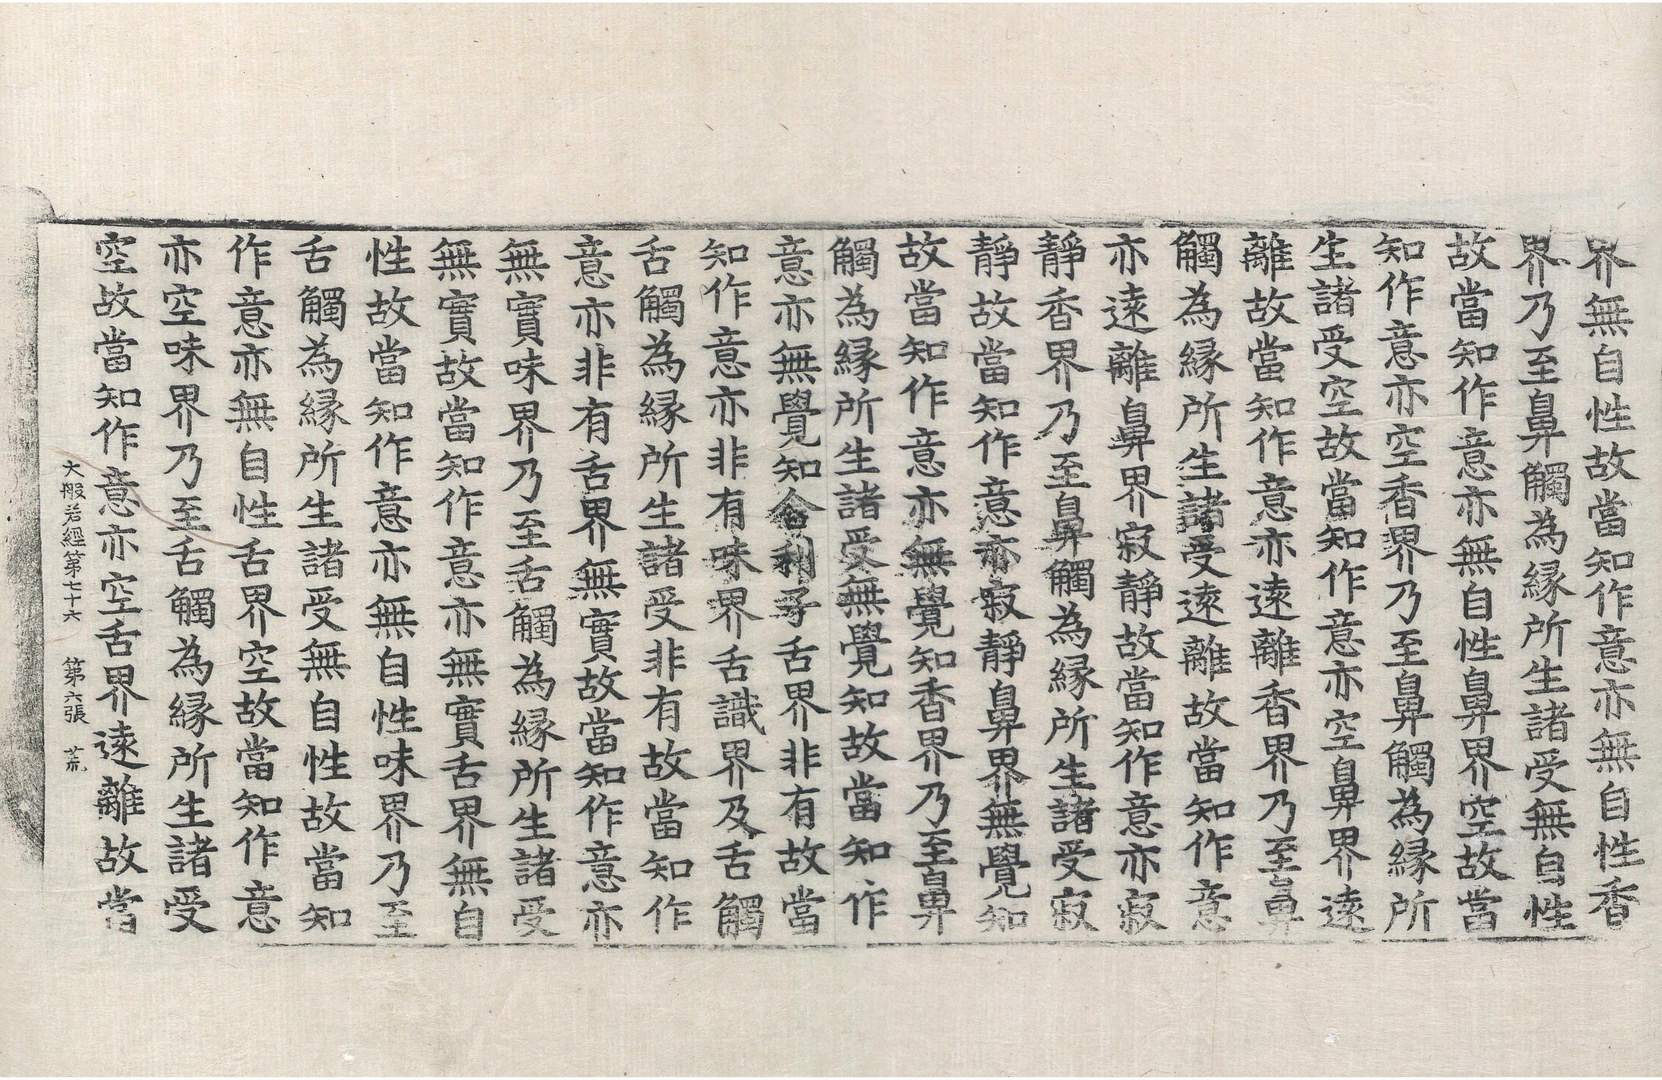 界無自性故當知作意亦無自性香
界乃至鼻觸為縁所生諸受無自性
故當知作意亦無自性鼻界空故當
知作意亦空香界乃至鼻觸為縁所
生諸受空故當知作意亦空鼻界遠
離故當知作意亦遠離香界乃至鼻
觸為縁所生諸受遠離故當知作意
亦遠離鼻界寂靜故當知作意亦寂
靜香界乃至鼻觸為縁所生諸受寂
靜故當知作意亦寂靜鼻界無覺知
故當知作意亦無覺知香界乃至鼻
觸為縁所生諸受無覺知故當知作
意亦無覺知舍利子舌界非有故當
知作意亦非有味界舌識界及舌觸
舌觸為縁所生諸受非有故當知作
意亦非有舌界無實故當知作意亦
無實味界乃至舌觸為縁所生諸受
無實故當知作意亦無實舌界無自
性故當知作意亦無自性味界乃至
舌觸為縁所生諸受無自性故當知
作意亦無自性舌界空故當知作意
亦空味界乃至舌觸為縁所生諸受
空故當知作意亦空舌界遠離故當
大般若經第七十六 第六張 荒